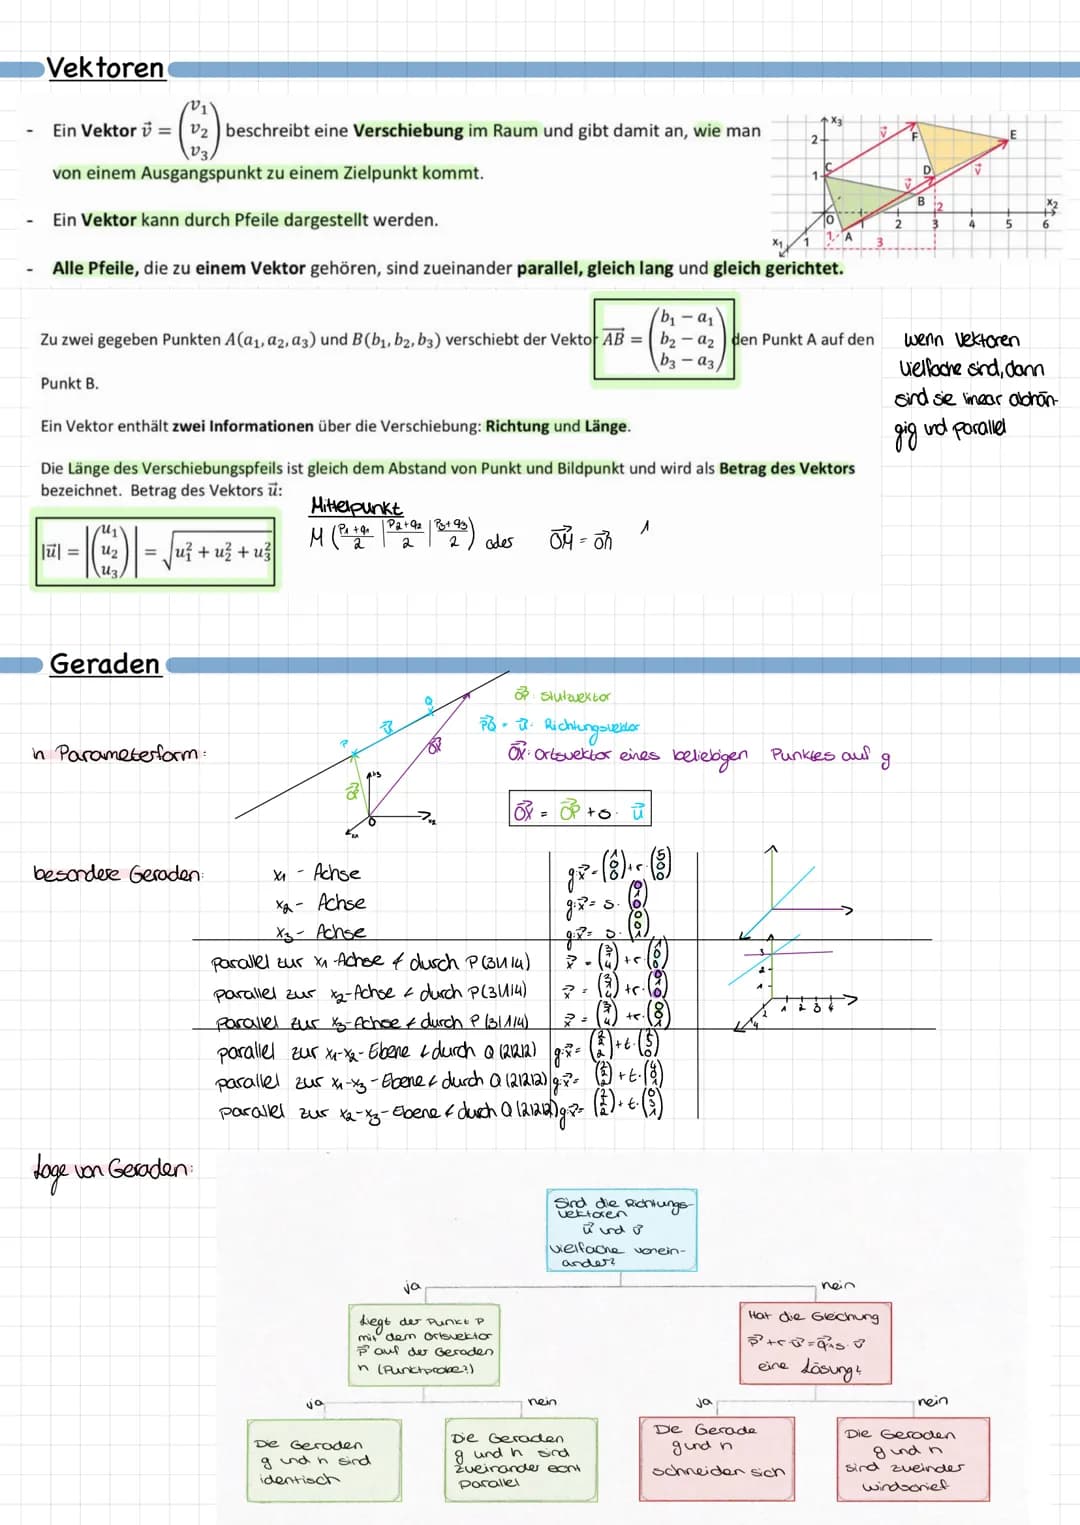 Vektoren
- Ein Vektor v⃗ = (v₁ v₂ v₃) beschreibt eine Verschiebung im Raum und gibt damit an, wie man
von einem Ausgangspunkt zu einem Zielpunkt kommt.
- Ein Vektor kann durch Pfeile dargestellt werden.
- Alle Pfeile, die zu einem Vektor gehören, sind zueinander parallel, gleich lang und gleich gerichtet.
Zu zwei gegeben Punkten A(a₁, a₂, a₃) und B(b₁, b₂, b₃) verschiebt der Vektor AB⃗ = (b₁ − a₁ b₂ − a₂ b₃ − a₃) den Punkt A auf den
Punkt B.
wenn Vektoren
vielfache sind, dann
sind sie linear abhän-
gig und parallel
Ein Vektor enthält zwei Informationen über die Verschiebung: Richtung und Länge.
Die Länge des Verschiebungspfeils ist gleich dem Abstand von Punkt und Bildpunkt und wird als Betrag des Vektors
bezeichnet. Betrag des Vektors u⃗:
|u⃗| = |(u₁ u₂ u₃)| = √(u₁² + u₂² + u₃²)
Mittelpunkt
M (P₁+q₁/2 | P₂+q₂/2 | P₃+q₃/2) oder OM⃗ =
Geraden
in Parameterform:
OP⃗: Stützvektor
PQ⃗ = u⃗: Richtungsvektor
OX⃗: Ortsvektor eines beliebigen Punktes auf g
OX⃗ = OP⃗ + s · u⃗
besondere Geraden:
x₁ - Achse g: x⃗ = (1 0 0) + r · (5 0 0)
x₂ - Achse g: x⃗ = s · (0 1 0)
x₃ - Achse g: x⃗ = s · (0 0 1)
parallel zur x₁-Achse & durch P(3|1|4) x⃗ = (3 1 4) + r · (1 0 0)
parallel zur x₂-Achse & durch P(3|1|4) x⃗ = (3 1 4) + r · (0 1 0)
parallel zur x₃-Achse & durch P(3|1|4) x⃗ = (3 1 4) + r · (0 0 1)
parallel zur x₁-x₂-Ebene & durch Q(2|2|2) g: x⃗ = (2 2 2) + t ·
parallel zur x₁-x₃-Ebene & durch Q(2|2|2) g: x⃗ = (2 2 2) + t ·
parallel zur x₂-x₃-Ebene & durch Q(2|2|2) g: x⃗ = (2 2 2) + t · (0 3 1)
Lage von Geraden:
Sind die Richtungs-
vektoren
u⃗ und v⃗
vielfache vonein-
ander?
ja
nein
Liegt der Punkt P
mit dem Ortsvektor
p⃗ auf der Geraden
h (Punktprobe?)
Hat die Gleichung
p⃗ + r · u⃗ = q⃗ + s · v⃗
eine Lösung?
ja
nein
ja
nein
Die Geraden
g und h sind
identisch
Die Geraden
g und h sind
zueinander echt
parallel
Die Gerade
g und h
schneiden sich
Die Geraden
g und h
sind zueinder
windschief